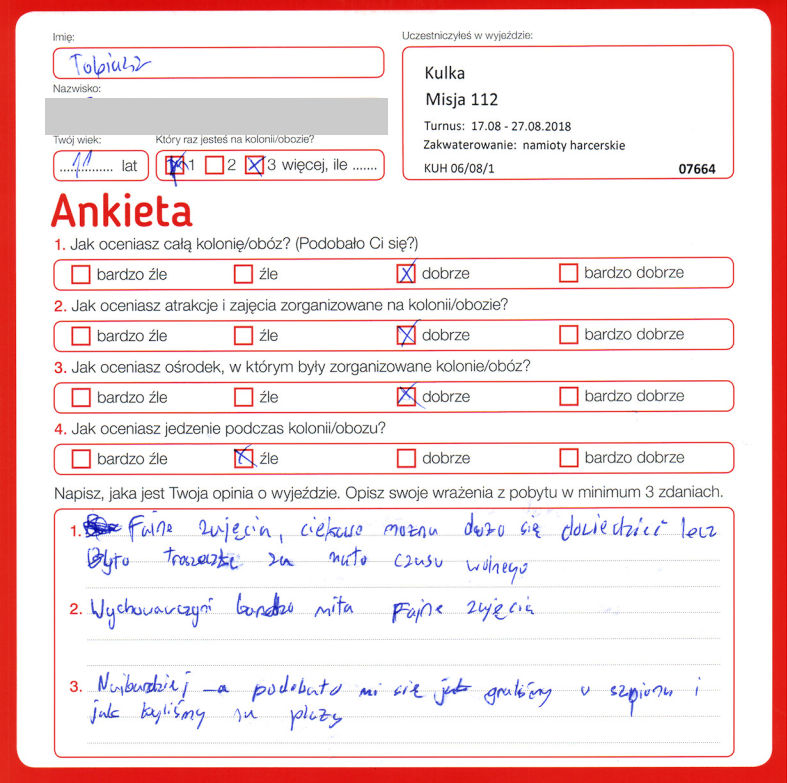 Imię:
Tobiasz
Nazwisko:
Twój wiek:
11 lat
Który raz jesteś na kolonii/obozie?
1 2 3 więcej, ile .......
Uczestniczyłeś w wyjeździe:
Kulka
Misja 112
Turnus: 17.08 - 27.08.2018
Zakwaterowanie: namioty harcerskie
KUH 06/08/1 07664
Ankieta
1. Jak oceniasz całą kolonię/obóz? (Podobało Ci się?)
bardzo źle źle dobrze bardzo dobrze
2. Jak oceniasz atrakcje i zajęcia zorganizowane na kolonii/obozie?
bardzo źle źle dobrze bardzo dobrze
3. Jak oceniasz ośrodek, w którym były zorganizowane kolonie/obóz?
bardzo źle źle dobrze bardzo dobrze
4. Jak oceniasz jedzenie podczas kolonii/obozu?
bardzo źle źle dobrze bardzo dobrze
Napisz, jaka jest Twoja opinia o wyjeździe. Opisz swoje wrażenia z pobytu w minimum 3 zdaniach.
1. Fajne zajęcia, ciekawe można dużo się dowiedzieć lecz
Było troszeczkę za mało czasu wolnego
2. Wychowawczyni bardzo miła Fajne zajęcia
3. Najbardziej podobało mi się jak graliśmy w szpiona i
jak byliśmy na plaży